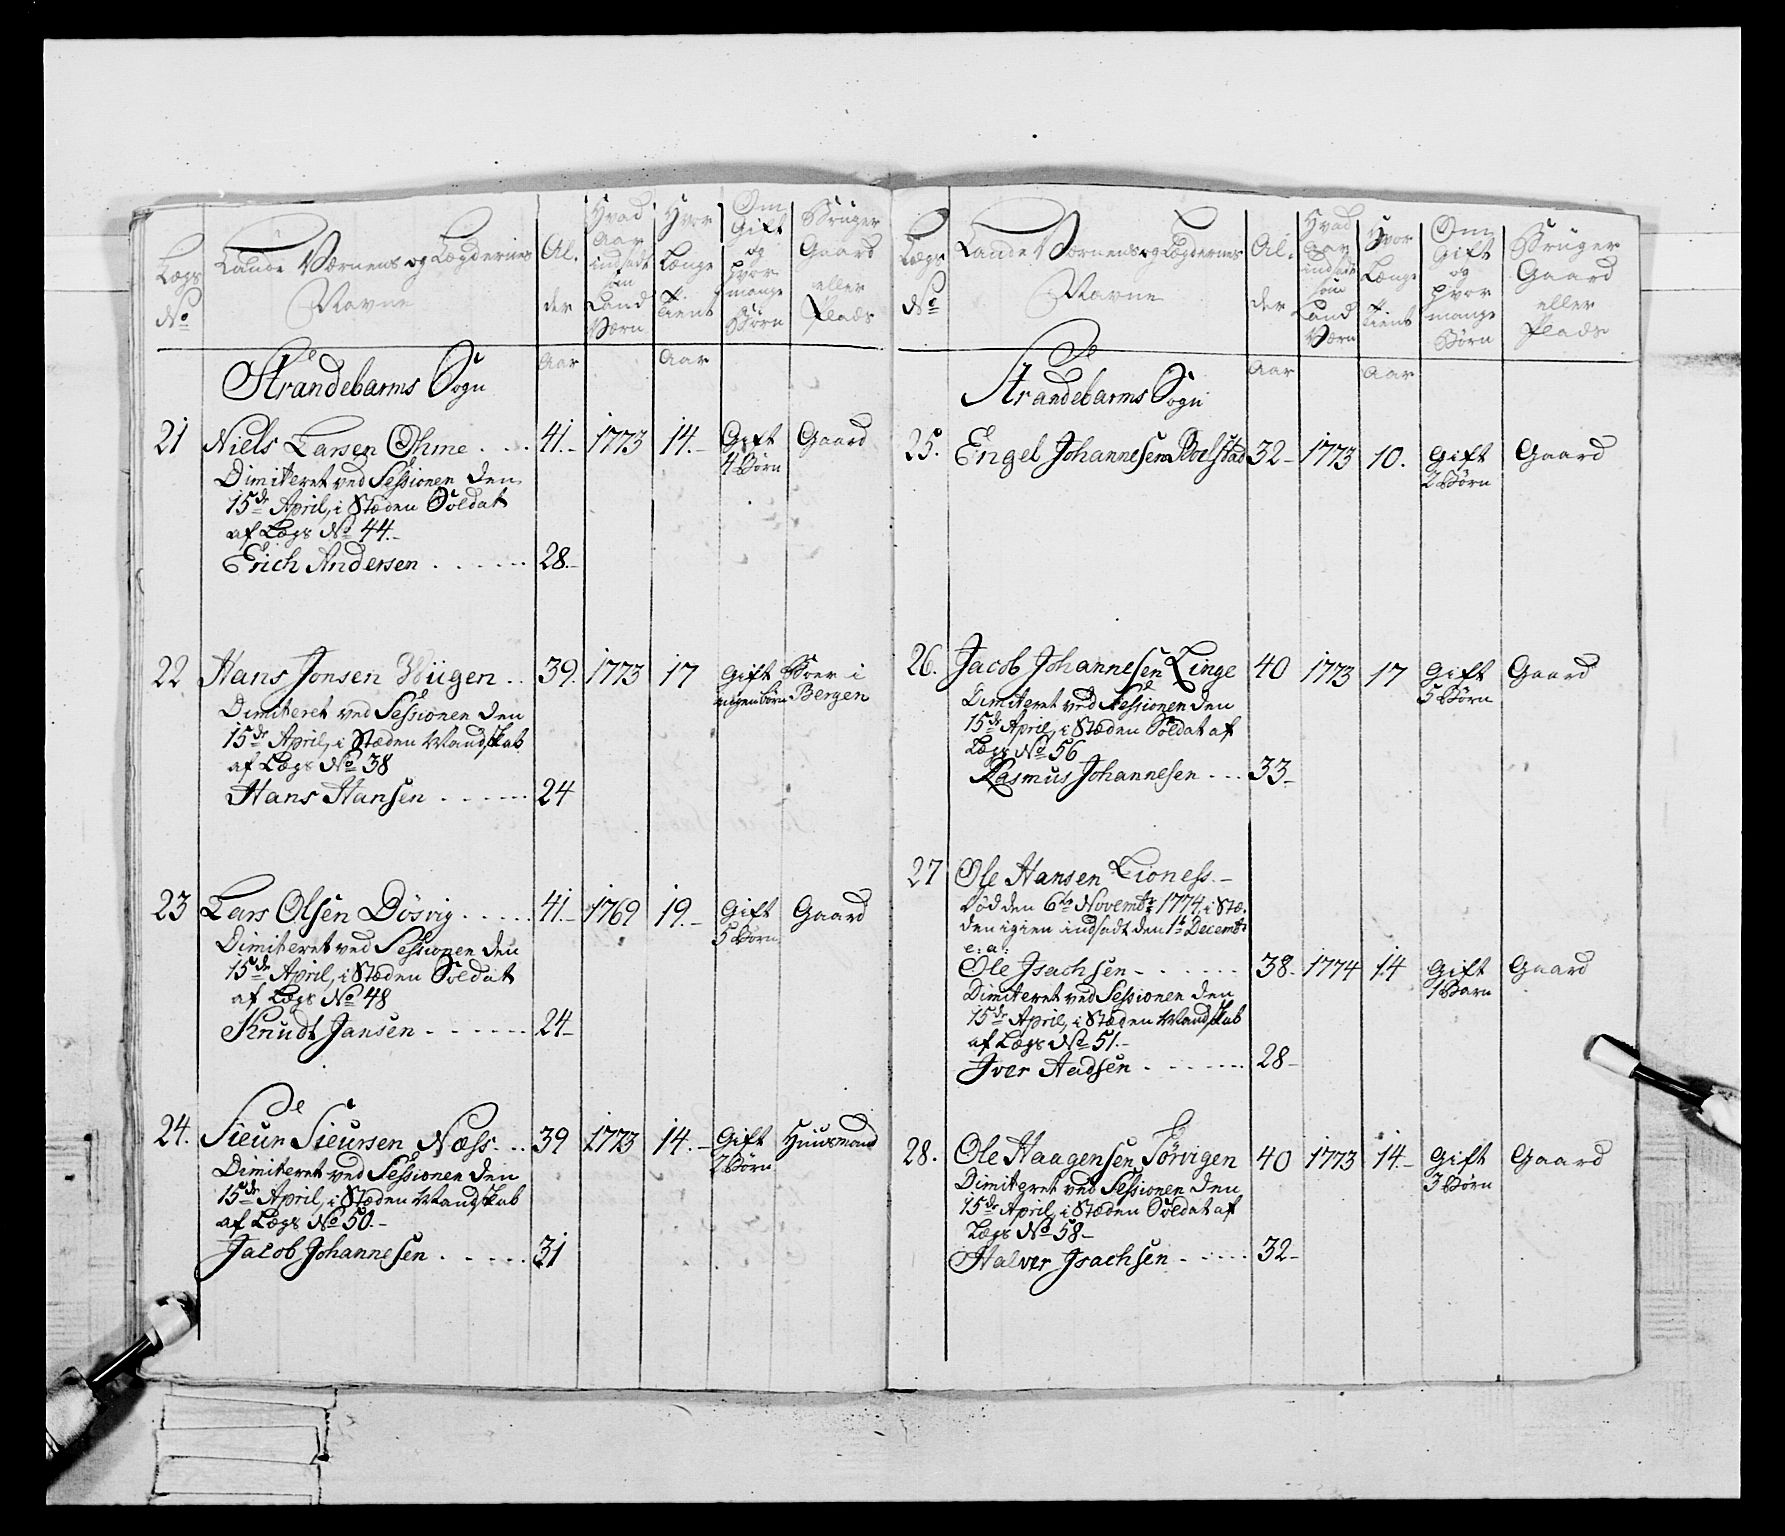 Lægs No
Lande Værnens og Lægdernes Navne
Al. der
Hvad Aar indsadt som Land Værn
Hvor Længe tient
Om Gift og hvor mange Børn
Brüger Gaard eller Plads
Strandebarms Sogn
Aar Aar
21 Niels Larsen Ohme . . . 41.- 1773 14.- Gift Gaard
4 Børn
Dimiteret ved Sessionen den
15de April, i Stæden Soldat
af Lægs No 44.-
Erich Andersen . . . . . . 28.-
22 Hans Jonsen Wiigen . . 39. 1773 17 Gift Boer i
ingen børn Bergen
Dimiteret ved Sessionen den
15de April, i Stæden Mandskab
af Lægs No 38
Hans Hansen . . . . . . 24
23 Lars Olsen Dösvig . . . . . 41.- 1769 19.- Gift Gaard
5 Børn
Dimiteret ved Sessionen den
15de April, i Stæden Soldat
af Lægs No 48
Knudt Jansen . . . . . . 24-
24. Sieur Sieursen Næss . . . 39 1773 14.- Gift Huusmand
2 Børn
Dimiteret ved Sessionen den
15de April, i Stæden Mandskab
af Lægs No 50.-
Jacob Johannesen . . . . . 31
Lægs No
Lande Værnens og Lægdernes Navne
Al. der
Hvad Aar indsadt som Land Værn
Hvor Længe tient
Om Gift og hvor mange Børn
Brüger Gaard eller Plads
Strandebarms Sogn
Aar Aar
25. Engel Johannesen Roelstad 32- 1773 10. Gift Gaard
2 Børn
26. Jacob Johannesen Linge 40 1773 17 Gift Gaard
5 Børn
Dimiteret ved Sessionen den
15de April, i Stæden Soldat af
Lægs No 56
Rasmus Johannesen . . . 33-
27 Ole Hansen Lioness.-
død den 6te Novembr 1774, i Stæ-
den igien indsadt den 1te Decembr
e: a:
Ole Isachsen . . . . . . 38. 1774 14 Gift Gaard
1 Barn
Dimiteret ved Sessionen den
15de April, i Stæden Mandskab
af Lægs No 51.-
Iver Aadsen . . . . . . . 28-
28. Ole Haagensen Törvigen 40 1773 14.- Gift Gaard
3 Børn
Dimiteret ved Sessionen den
15de April, i Stæden Soldat af
Lægs No 58-
Halver Isachsen . . . . . 32-